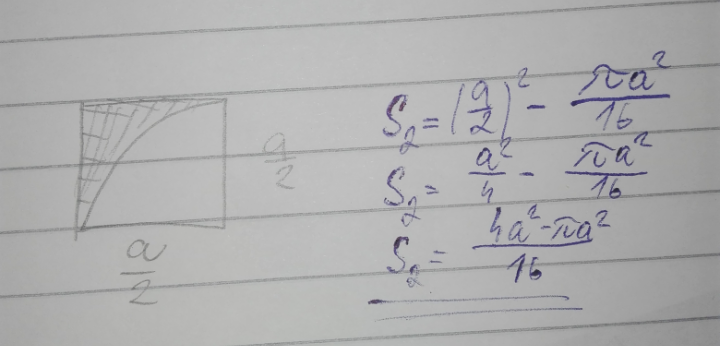 a/2
a/2
S₂ = (a/2)² - πa²/16
S₂ = a²/4 - πa²/16
S₂ = 4a²-πa²/16